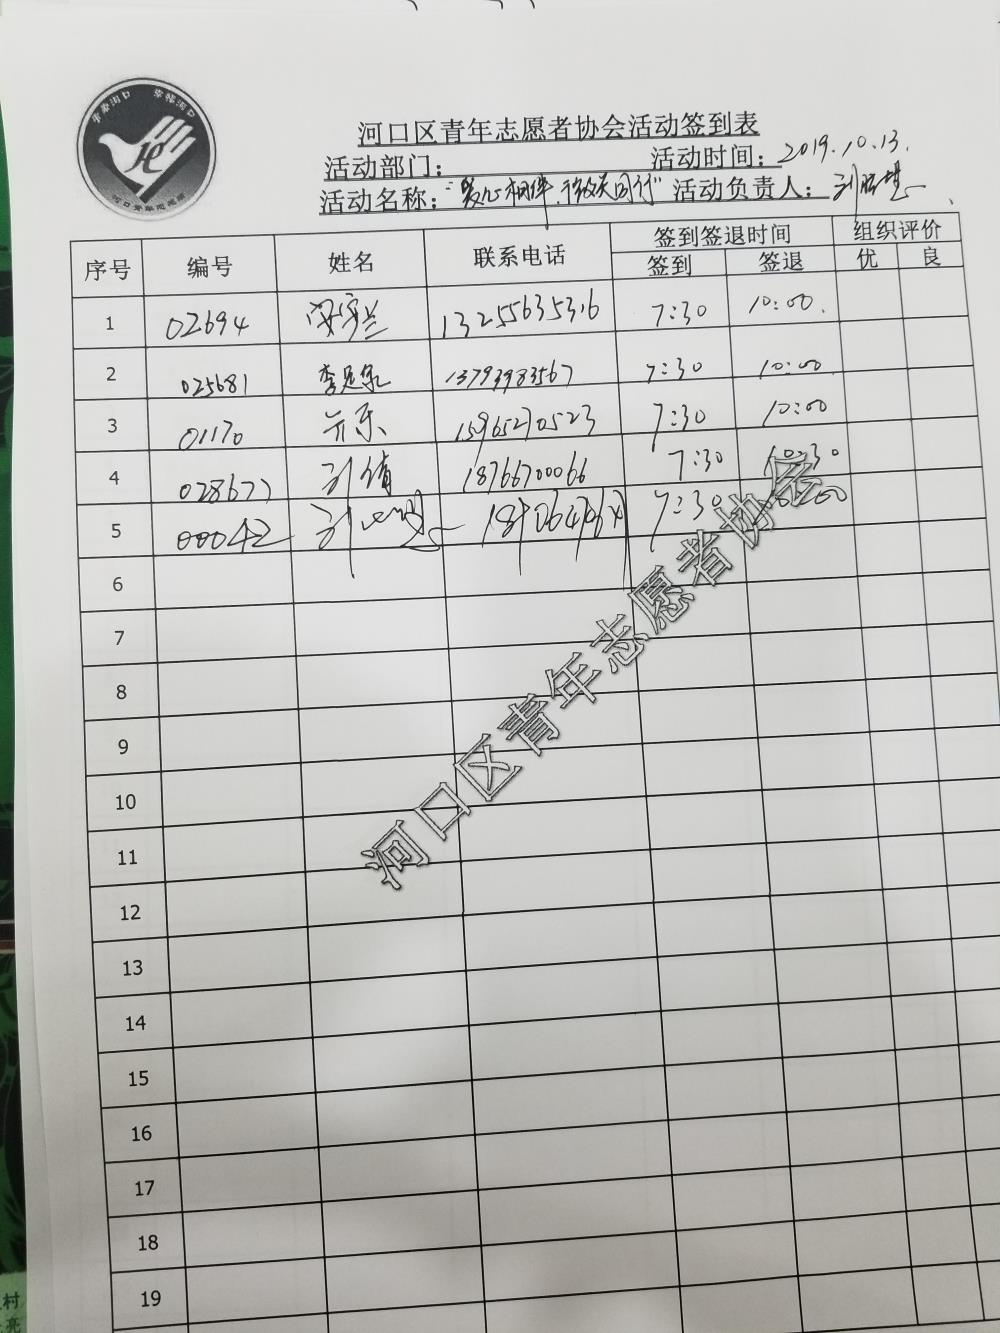 河口区青年志愿者协会活动签到表
活动部门： 活动时间：2019.10.13.
活动名称："爱心相伴，微笑同行" 活动负责人：
序号 编号 姓名 联系电话 签到签退时间 组织评价
签到 签退 优 良
1 02694 13255635316 7:30 10:00.
2 025681 13793983567 7:30 10:00
3 01170 15965270523 7:30 10:00
4 028677 刘倩 18766700066 7:30 10:30
5 00042 7:30
6
7
8
9
10
11
12
13
14
15
16
17
18
19
河口区青年志愿者协会
青春河口 幸福河口
河口青年志愿者
村
亮